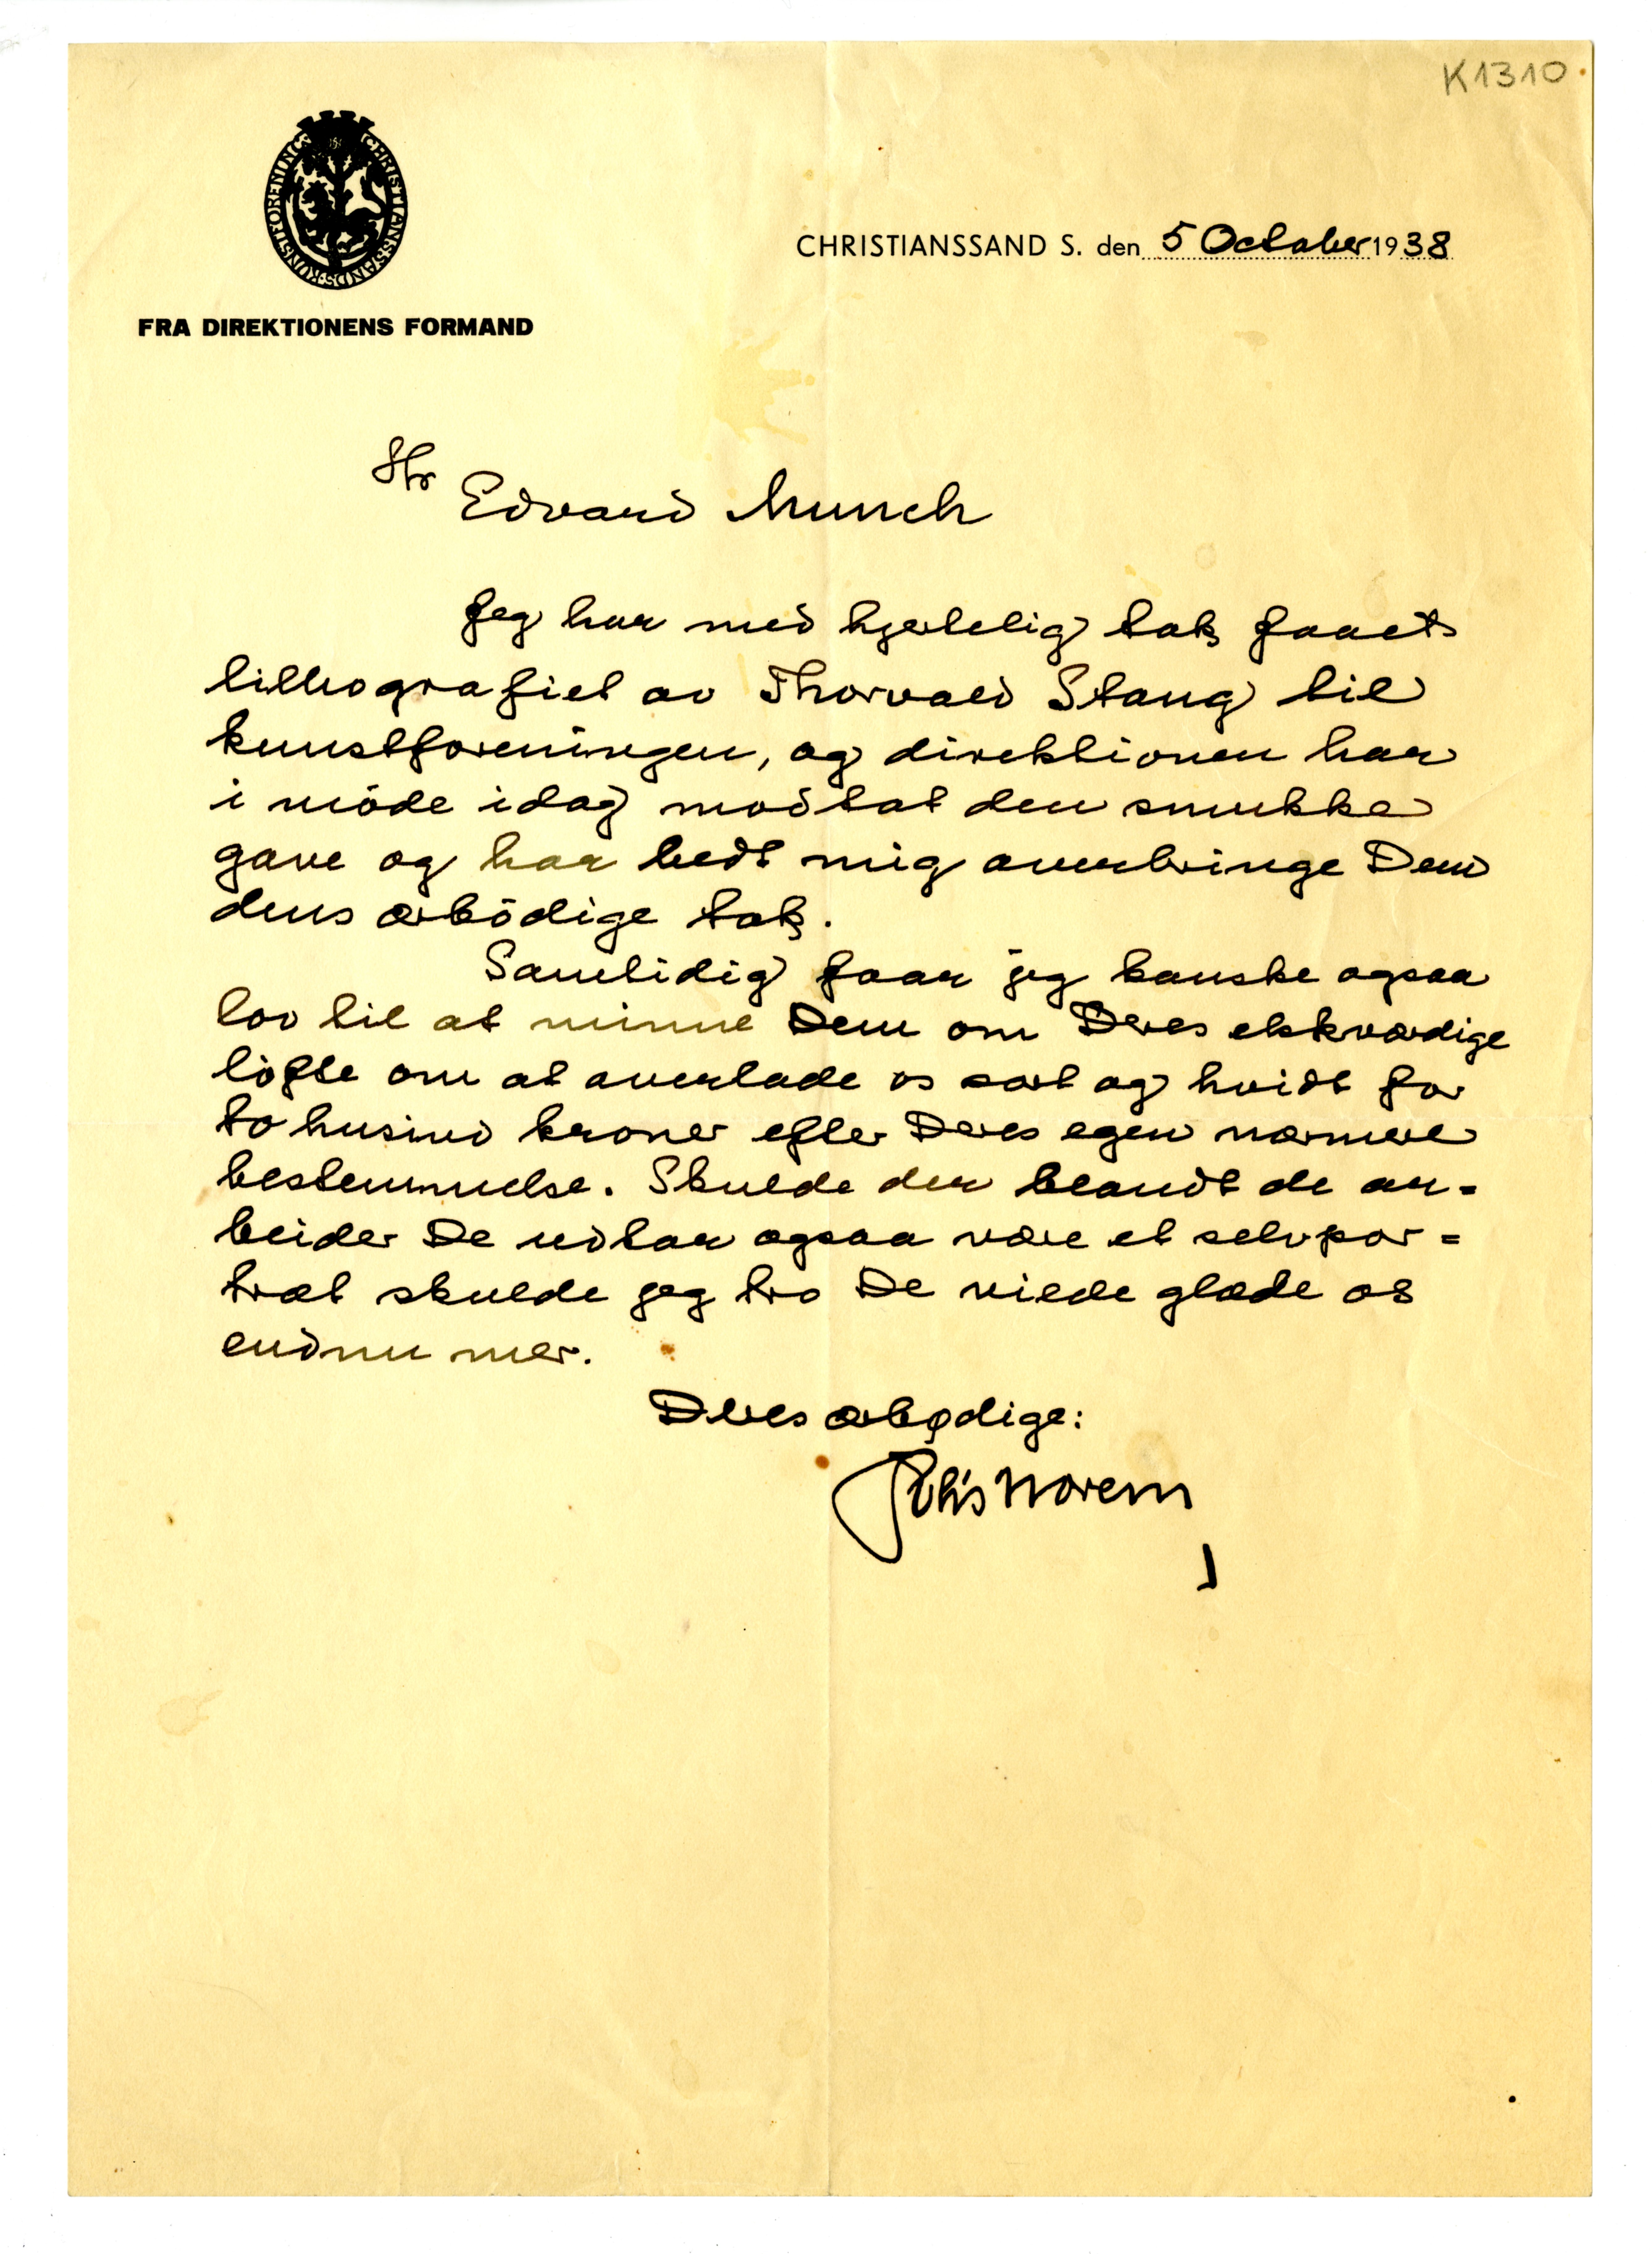 K1310
CHRISTIANSSANDS KUNSTFORENING
CHRISTIANSSAND S. den 5 October 1938
FRA DIREKTIONENS FORMAND
Hr
Edvard Munch
Jeg har med hjertelig tak faaet
lithografiet av Thorvald Stang til
kunstforeningen, og direktionen har
i møde idag modtat den smukke
gave og har bedt mig overbringe Dem
dens ærbödige tak.
Samtidig faar jeg kanske ogsaa
lov til at minne Dem om Deres elskværdige
löfte om at overlade os sort og hvidt for
to husind kroner efter Deres egen nærmere
bestemmelse. Skulde der blandt de ar=
beider De udtar ogsaa være et selvpor=
træt skulde jeg tro De vilde glæde os
endnu mer.
Deres ærbødige:
Norem